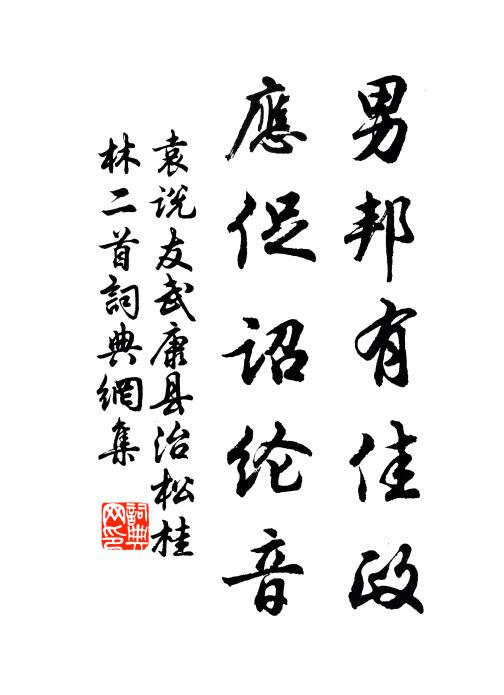 男邦有佳政
應促詔纶音
袁说友武康县治松桂
林二首詞典網集
詞典网印